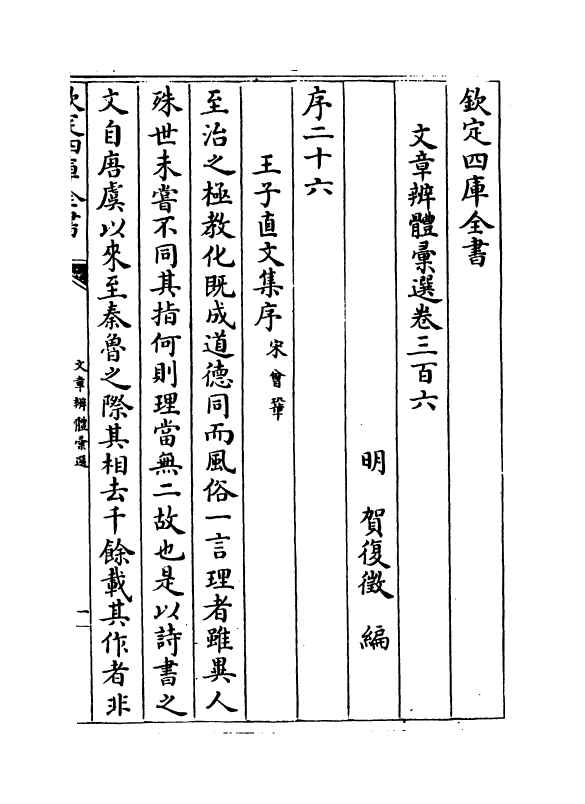 欽定四庫全書
文章辨體彚選卷三百六
明　賀復徵　編
序二十六
王子直文集序宋曾鞏
至治之極教化既成道德同而風俗一言理者雖異人
殊世未嘗不同其指何則理當無二故也是以詩書之
文自唐虞以來至秦魯之際其相去千餘載其作者非
欽定四庫全書
文章辨體彚選
一